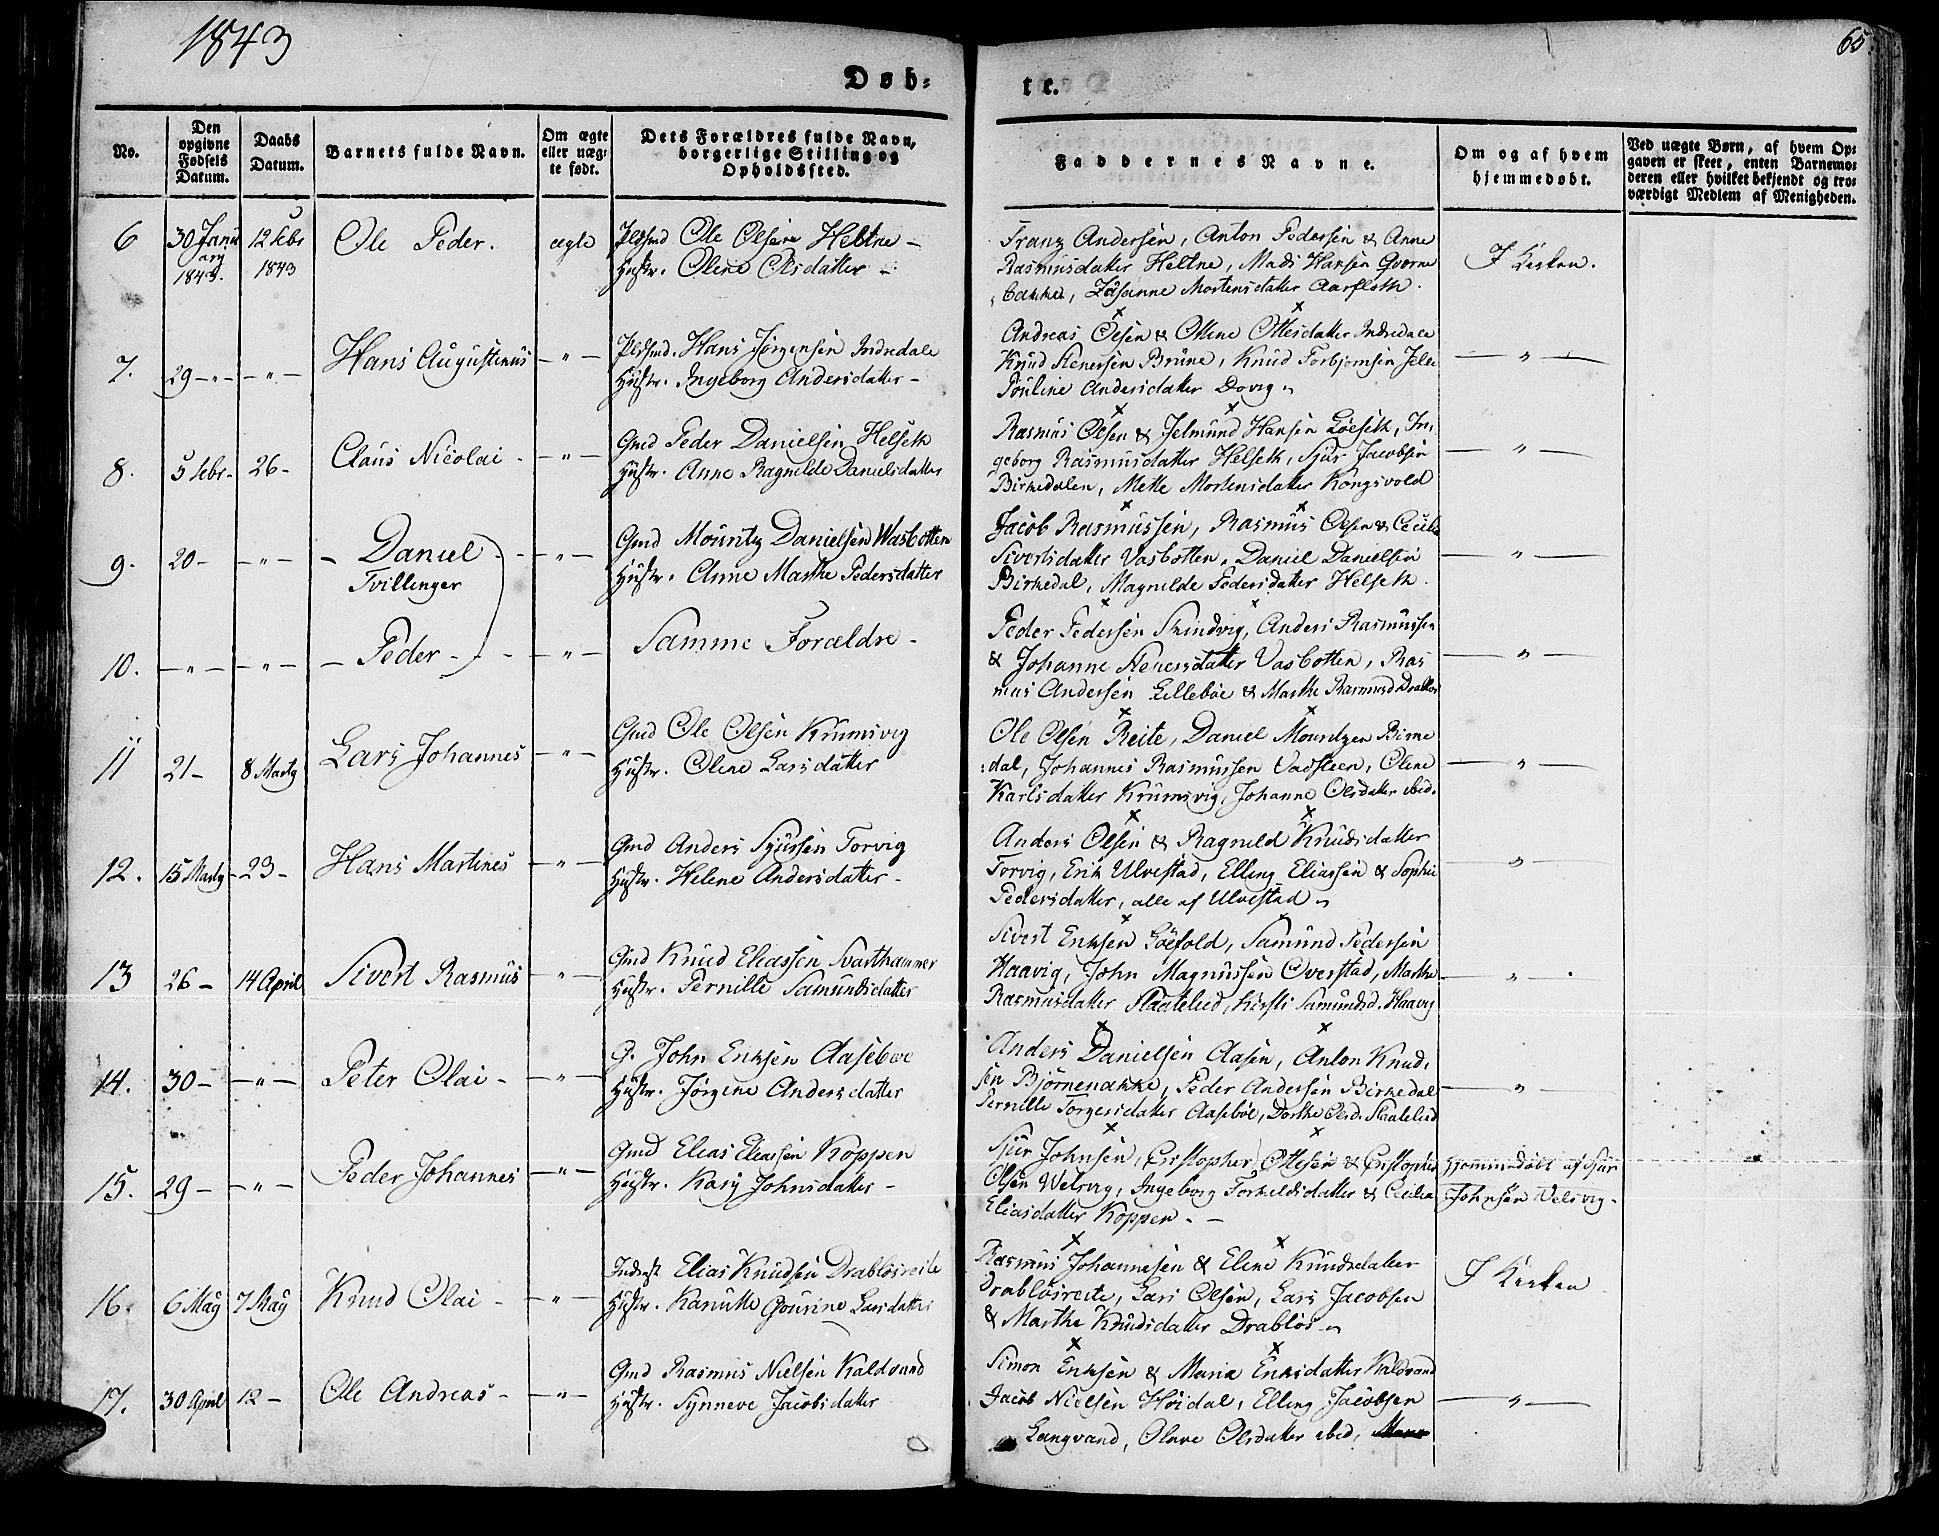 1843
65.
Døb=
te.
No.
Den opgivne Fødsels Datum.
Daabs Datum.
Barnets fulde Navn.
Om ægte eller uægte født.
Dets Forældres fulde Navn, borgerlige Stilling og Opholdssted.
Faddernes Navne.
Om og af hvem hjemmedøbt.
Ved uægte Børn, af hvem Opgaven er skeet, enten Barnemoderen eller hvilket bekjendt og troværdigt Medlem af Menigheden.
6 30 Janu ary 1843. 12 Febr 1843 Ole Peder. ægte Pldsmd Ole Olsen Heltne –
Hustr. Olene Olsdatter –
Franz Andersen, Anton Pedersen & Anne
Rasmusdatter Heltne, Mads Hansen Qvorne
bakke, Zusanne Mortensdatter Aarfloth.
I Kirken.
7. 29 – " – – " – Hans Augustinus – " – Pldsmd. Hans Jørgensen Indredale
Hustr. Ingeborg Andersdatter –
Andreas Olsen & Oline Ottesdatter Indredale
Knud Stenersen Brune, Knud Torbjornsen
Pouline Andersdatter Dovig
– " –
8. 5 Febr – 26 – Claus Nicolai – – " – Gmd Peder Danielsen Helseth
Hustr. Anne Ragnilde Danielsdatter
Rasmus Olsen & Jelmund Hansen Løeseth, In,
geborg Rasmusdatter Helseth, Sjur Jacobsen
Birkedalen, Mette Mortensdatter Kongsvold
– " –
9. 20 – – " – – Daniel – – " – Gmd Mouritz Danielsen Wasbotten
Tvillinger
Hustr. Anne Marthe Pedersdatter
Jacob Rasmussen, Rasmus Olsen & Cecilie
Sivertsdatter Vasbotten, Daniel Danielsen
Birkedal, Magnilde Pedersdatter Helseth.
– " –
10. – " – – " – – Peder – – " – Samme Forældre –
Peder Pedersen Strindvig, Anders Rasmussen
& Johanne Stenersdatter Vasbotten, Ras
mus Andersen Lillebøe & Marthe Rasmusd Drabløs
– " –
11 21 – 8 Marty Lars Johannes – " – Gmd Ole Olsen Krumsvig
Hustr. Olene Larsdatter
Ole Olsen Reite, Daniel Mouritzen Birke
dal, Johannes Rasmussen Vadsteen, Olene
Karlsdatter Krumsvig, Johanne Olsdatter ibid.
– " –
12. 15 Marty – 23 – Hans Martines – " – Gmd Anders Sjursen Torvig
Hustr. Helene Andersdatter –
Anders Olsen & Ragnild Knudsdatter
Torvig, Erik Ulvestad, Elling Eliassen & Sophie
Pedersdatter, alle af Ulvestad
– " –
13 26 – 14 April Sivert Rasmus – " – Gmd Knud Eliassen Svarthammer
Hustr. Pernille Samundsdatter
Sivert Eriksen Løefold, Samund Pedersen
Haavig, John Magnussen Overstad, Marthe
Rasmusdatter Slaatelied, Kirsti Samundsd. Haavig
– " –
14. 30 – – " – Peter Olai – – " – G. John Eriksen Aasebøe
Hustr. Jørgine Andersdatter
Anders Danielsen Aasen, Anton Knud,
sen Bjørnenakke, Peder Andersen Birkedal
Pernille Torgersdatter Aasebøe, Dorthe Olsd. Slaatelied
– " –
15. 29 – – " – Peder Johannes – " – Gmd Elias Eliassen Koppen
Hustr. Kary Johnsdatter –
Sjur Johnsen, Cristopher Ottesen & Cristopher
Olsen Velsvig, Ingeborg Torkeldsdatter & Cecilia
Eliasdatter Koppen. –
Hjemmedøbt af Sjur
Johnsen Velsvig –
16. 6 May 7 May Knud Olai – – " – Inderst Elias Knudsen Drabløsreite
Hustr. Kanutte Gourine Larsdatter
Rasmus Johannesen & Eline Knudsdatter
Drabløsreite, Lars Olsen, Lars Jacobsen
& Marthe Knudsdatter Drabløs
I Kirken
17. 30 April 12 – Ole Andreas – – " – Gmd Rasmus Nielsen Kaldvand
Hustr. Synneve Jacobsdatter
Simon Eriksen & Maria Eriksdatter Kaldvand
Jacob Nielsen Høidal, Elling Jacobsen
Langvand, Olave Olsdatter ibid,
– " –